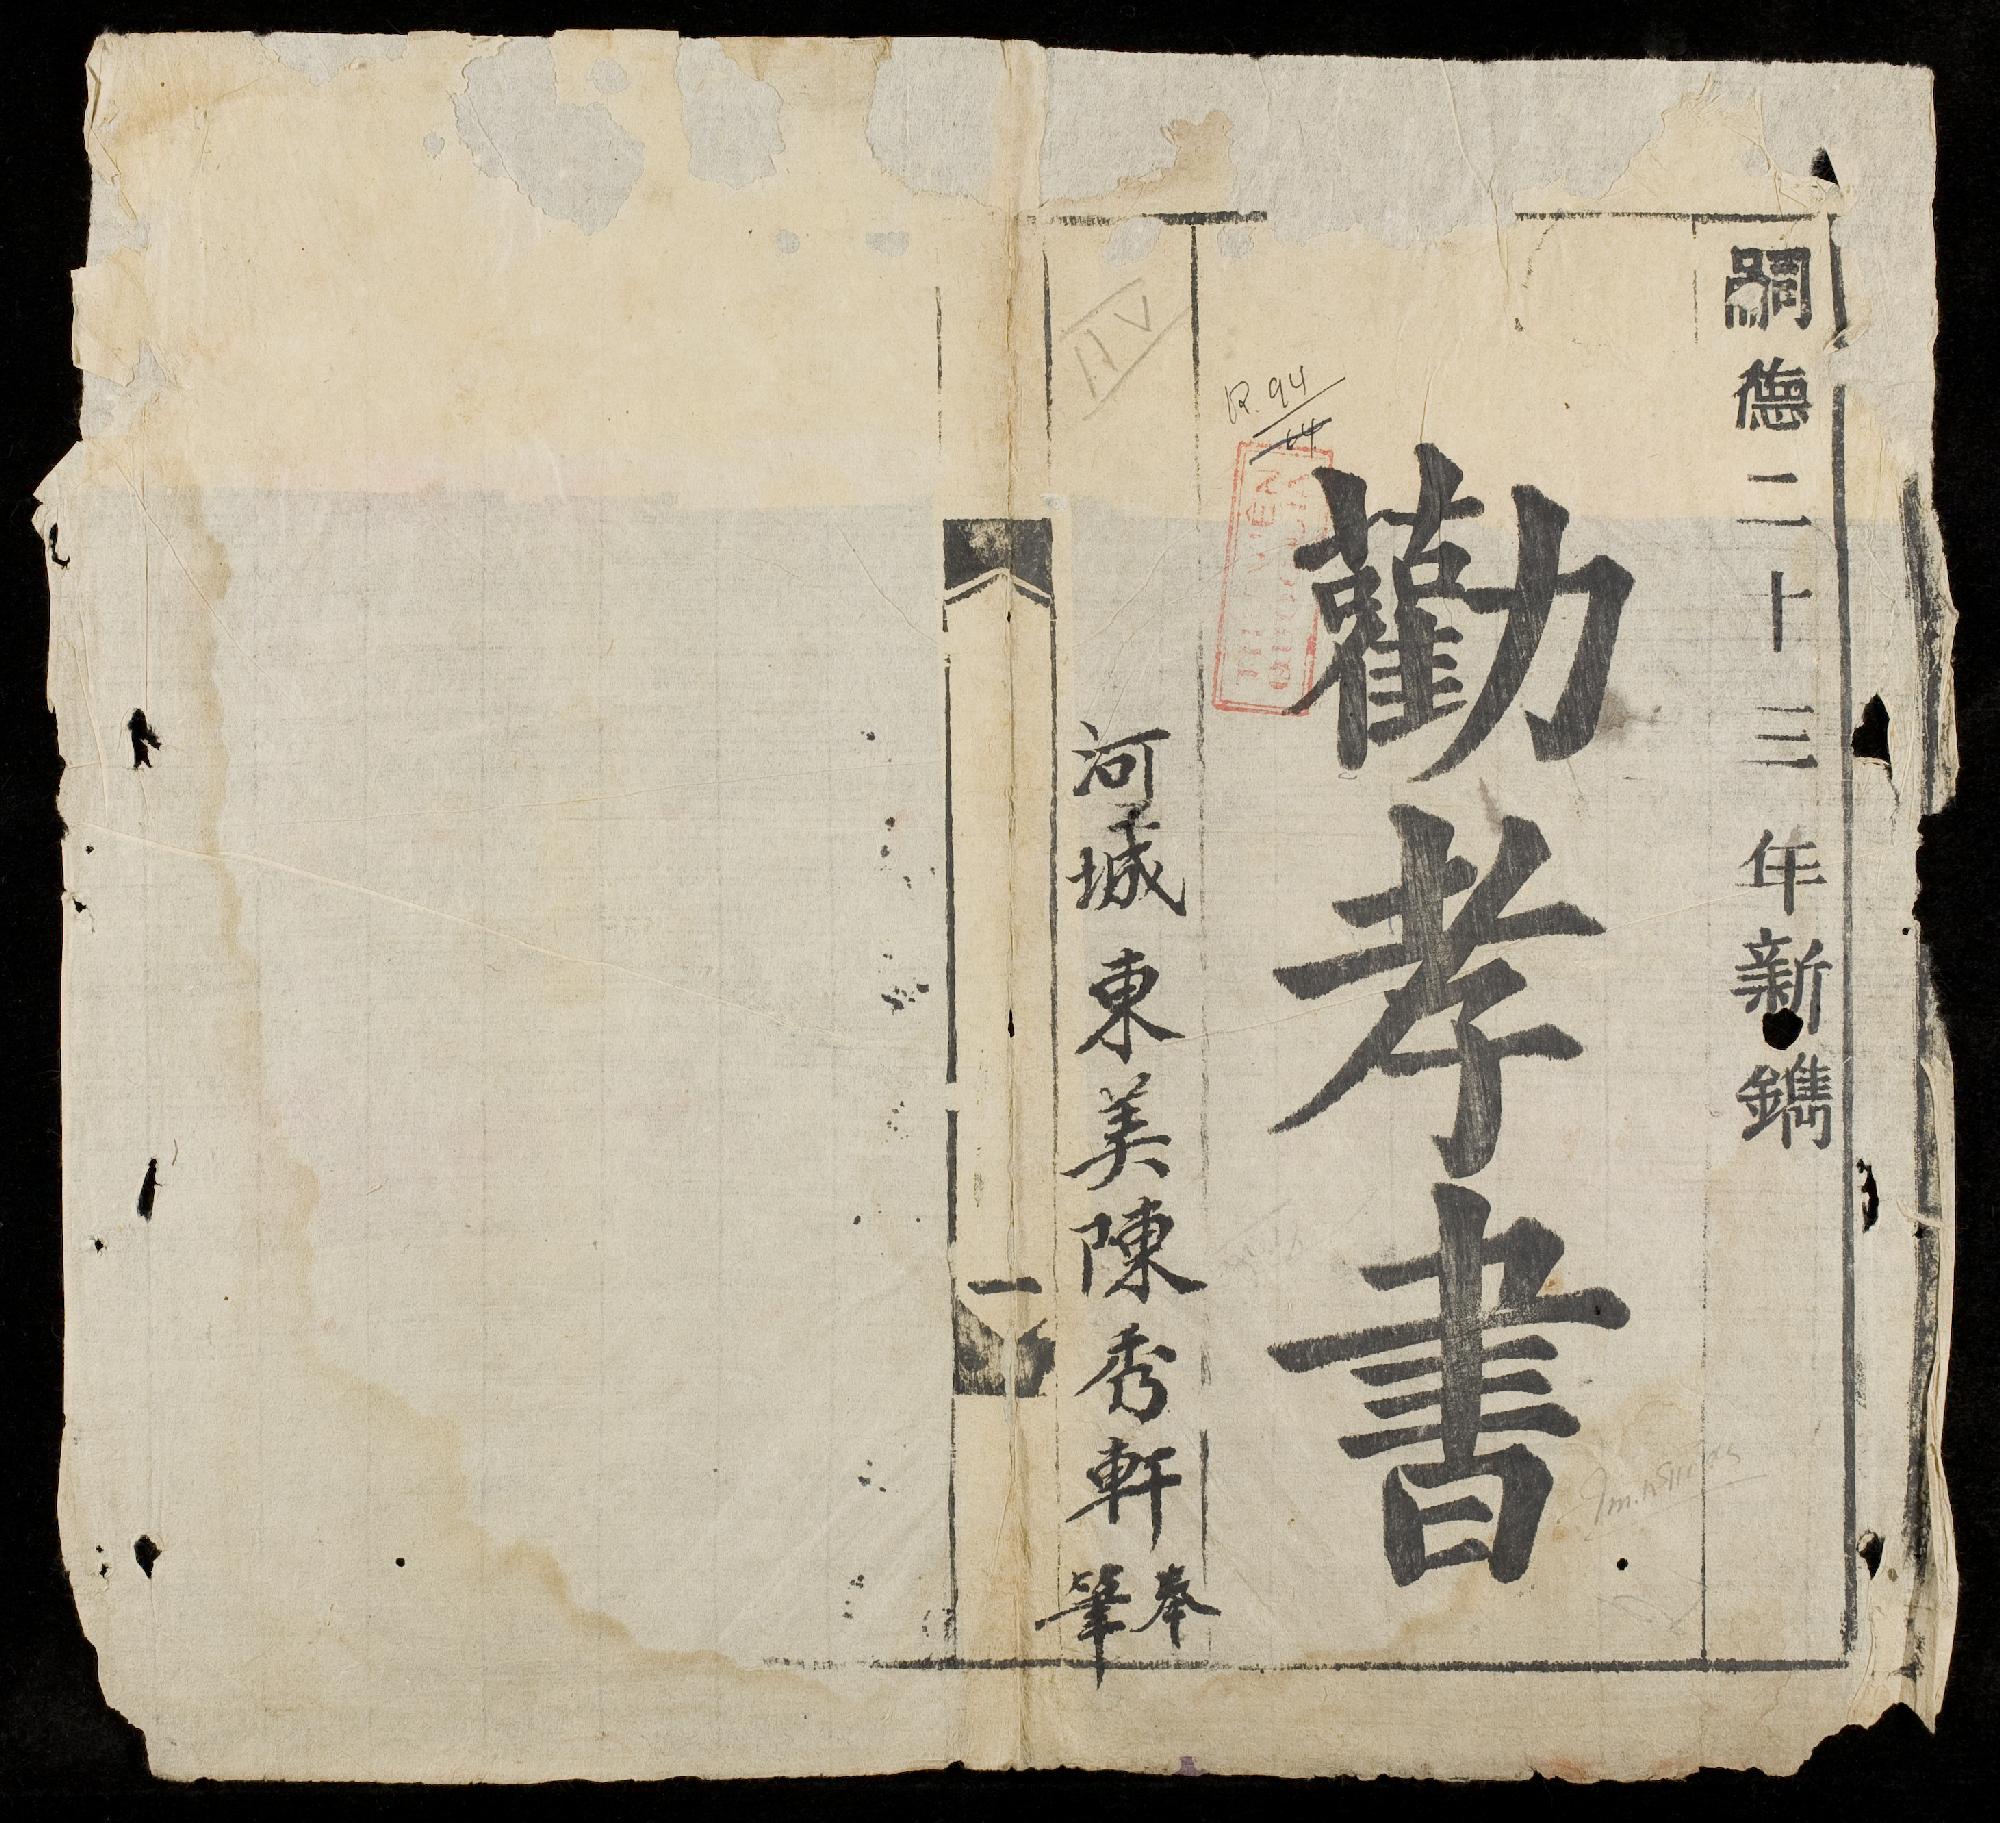 嗣德二十三年新鐫
勸孝書
河城東美陳秀軒奉筆
一
R. 94
64
THƯ VIỆN
QUỐC GIA